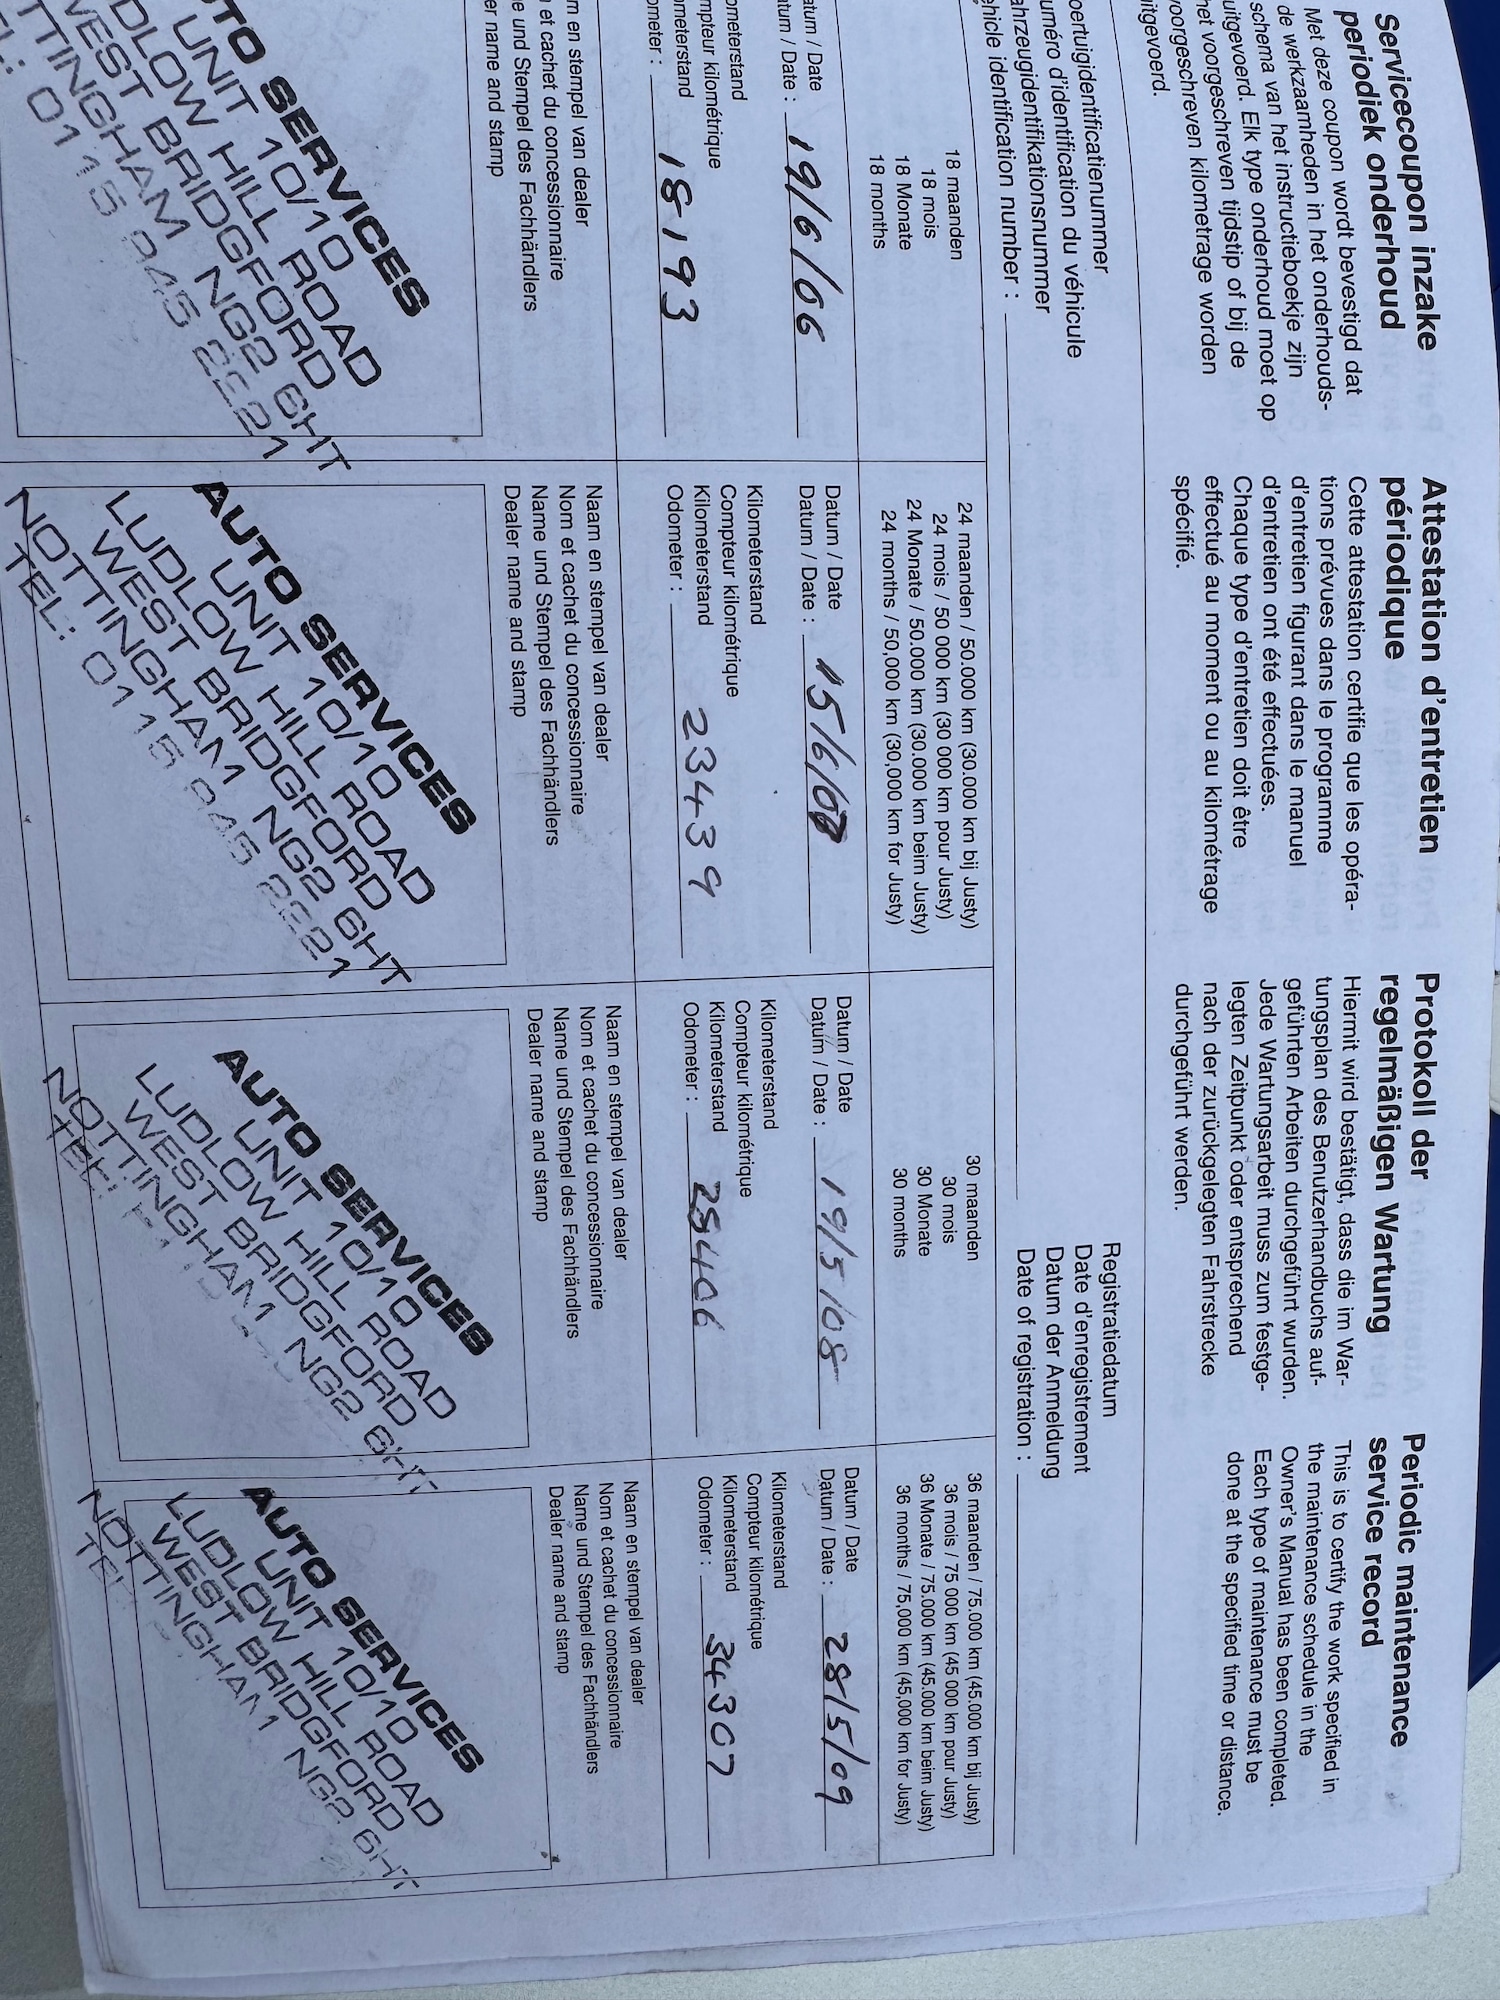 Servicecoupon inzake
periodiek onderhoud
Met deze coupon wordt bevestigd dat
de werkzaamheden in het onderhouds-
schema van het instructieboekje zijn
uitgevoerd. Elk type onderhoud moet op
het voorgeschreven tijdstip of bij de
voorgeschreven kilometrage worden
uitgevoerd.
Attestation d'entretien
périodique
Cette attestation certifie que les opéra-
tions prévues dans le programme
d'entretien figurant dans le manuel
d'entretien ont été effectuées.
Chaque type d'entretien doit être
effectué au moment ou au kilométrage
spécifié.
Protokoll der
regelmäßigen Wartung
Hiermit wird bestätigt, dass die im War-
tungsplan des Benutzerhandbuchs auf-
geführten Arbeiten durchgeführt wurden.
Jede Wartungsarbeit muss zum festge-
legten Zeitpunkt oder entsprechend
nach der zurückgelegten Fahrstrecke
durchgeführt werden.
Periodic maintenance
service record
This is to certify the work specified in
the maintenance schedule in the
Owner's Manual has been completed.
Each type of maintenance must be
done at the specified time or distance.
oertuigidentificatienummer
uméro d'identification du véhicule
ahrzeugidentifikationsnummer
ehicle identification number :
Registratiedatum
Date d'enregistrement
Datum der Anmeldung
Date of registration :
18 maanden
18 mois
18 Monate
18 months
atum / Date
atum / Date : 19/6/06
ometerstand
mpteur kilométrique
ometerstand
ometer : 18193
m en stempel van dealer
et cachet du concessionnaire
e und Stempel des Fachhändlers
er name and stamp
TO SERVICES
UNIT 10/10
DLOW HILL ROAD
WEST BRIDGFORD
TTINGHAM NG2 6HT
L: 0115 945 2221
24 maanden / 50.000 km (30.000 km bij Justy)
24 mois / 50 000 km (30 000 km pour Justy)
24 Monate / 50.000 km (30.000 km beim Justy)
24 months / 50,000 km (30,000 km for Justy)
Datum / Date
Datum / Date : 15/6/07
Kilometerstand
Compteur kilométrique
Kilometerstand
Odometer : 23439
Naam en stempel van dealer
Nom et cachet du concessionnaire
Name und Stempel des Fachhändlers
Dealer name and stamp
AUTO SERVICES
UNIT 10/10
LUDLOW HILL ROAD
WEST BRIDGFORD
NOTTINGHAM NG2 6HT
TEL: 0115 945 2221
30 maanden
30 mois
30 Monate
30 months
Datum / Date
Datum / Date : 19/5/08
Kilometerstand
Compteur kilométrique
Kilometerstand
Odometer : 28406
Naam en stempel van dealer
Nom et cachet du concessionnaire
Name und Stempel des Fachhändlers
Dealer name and stamp
AUTO SERVICES
UNIT 10/10
LUDLOW HILL ROAD
WEST BRIDGFORD
NOTTINGHAM NG2 6HT
TEL:
36 maanden / 75.000 km (45.000 km bij Justy)
36 mois / 75 000 km (45 000 km pour Justy)
36 Monate / 75.000 km (45.000 km beim Justy)
36 months / 75,000 km (45,000 km for Justy)
Datum / Date
Datum / Date : 28/5/09
Kilometerstand
Compteur kilométrique
Kilometerstand
Odometer : 34307
Naam en stempel van dealer
Nom et cachet du concessionnaire
Name und Stempel des Fachhändlers
Dealer name and stamp
AUTO SERVICES
UNIT 10/10
LUDLOW HILL ROAD
WEST BRIDGFORD
NOTTINGHAM NG2 6HT
TEL